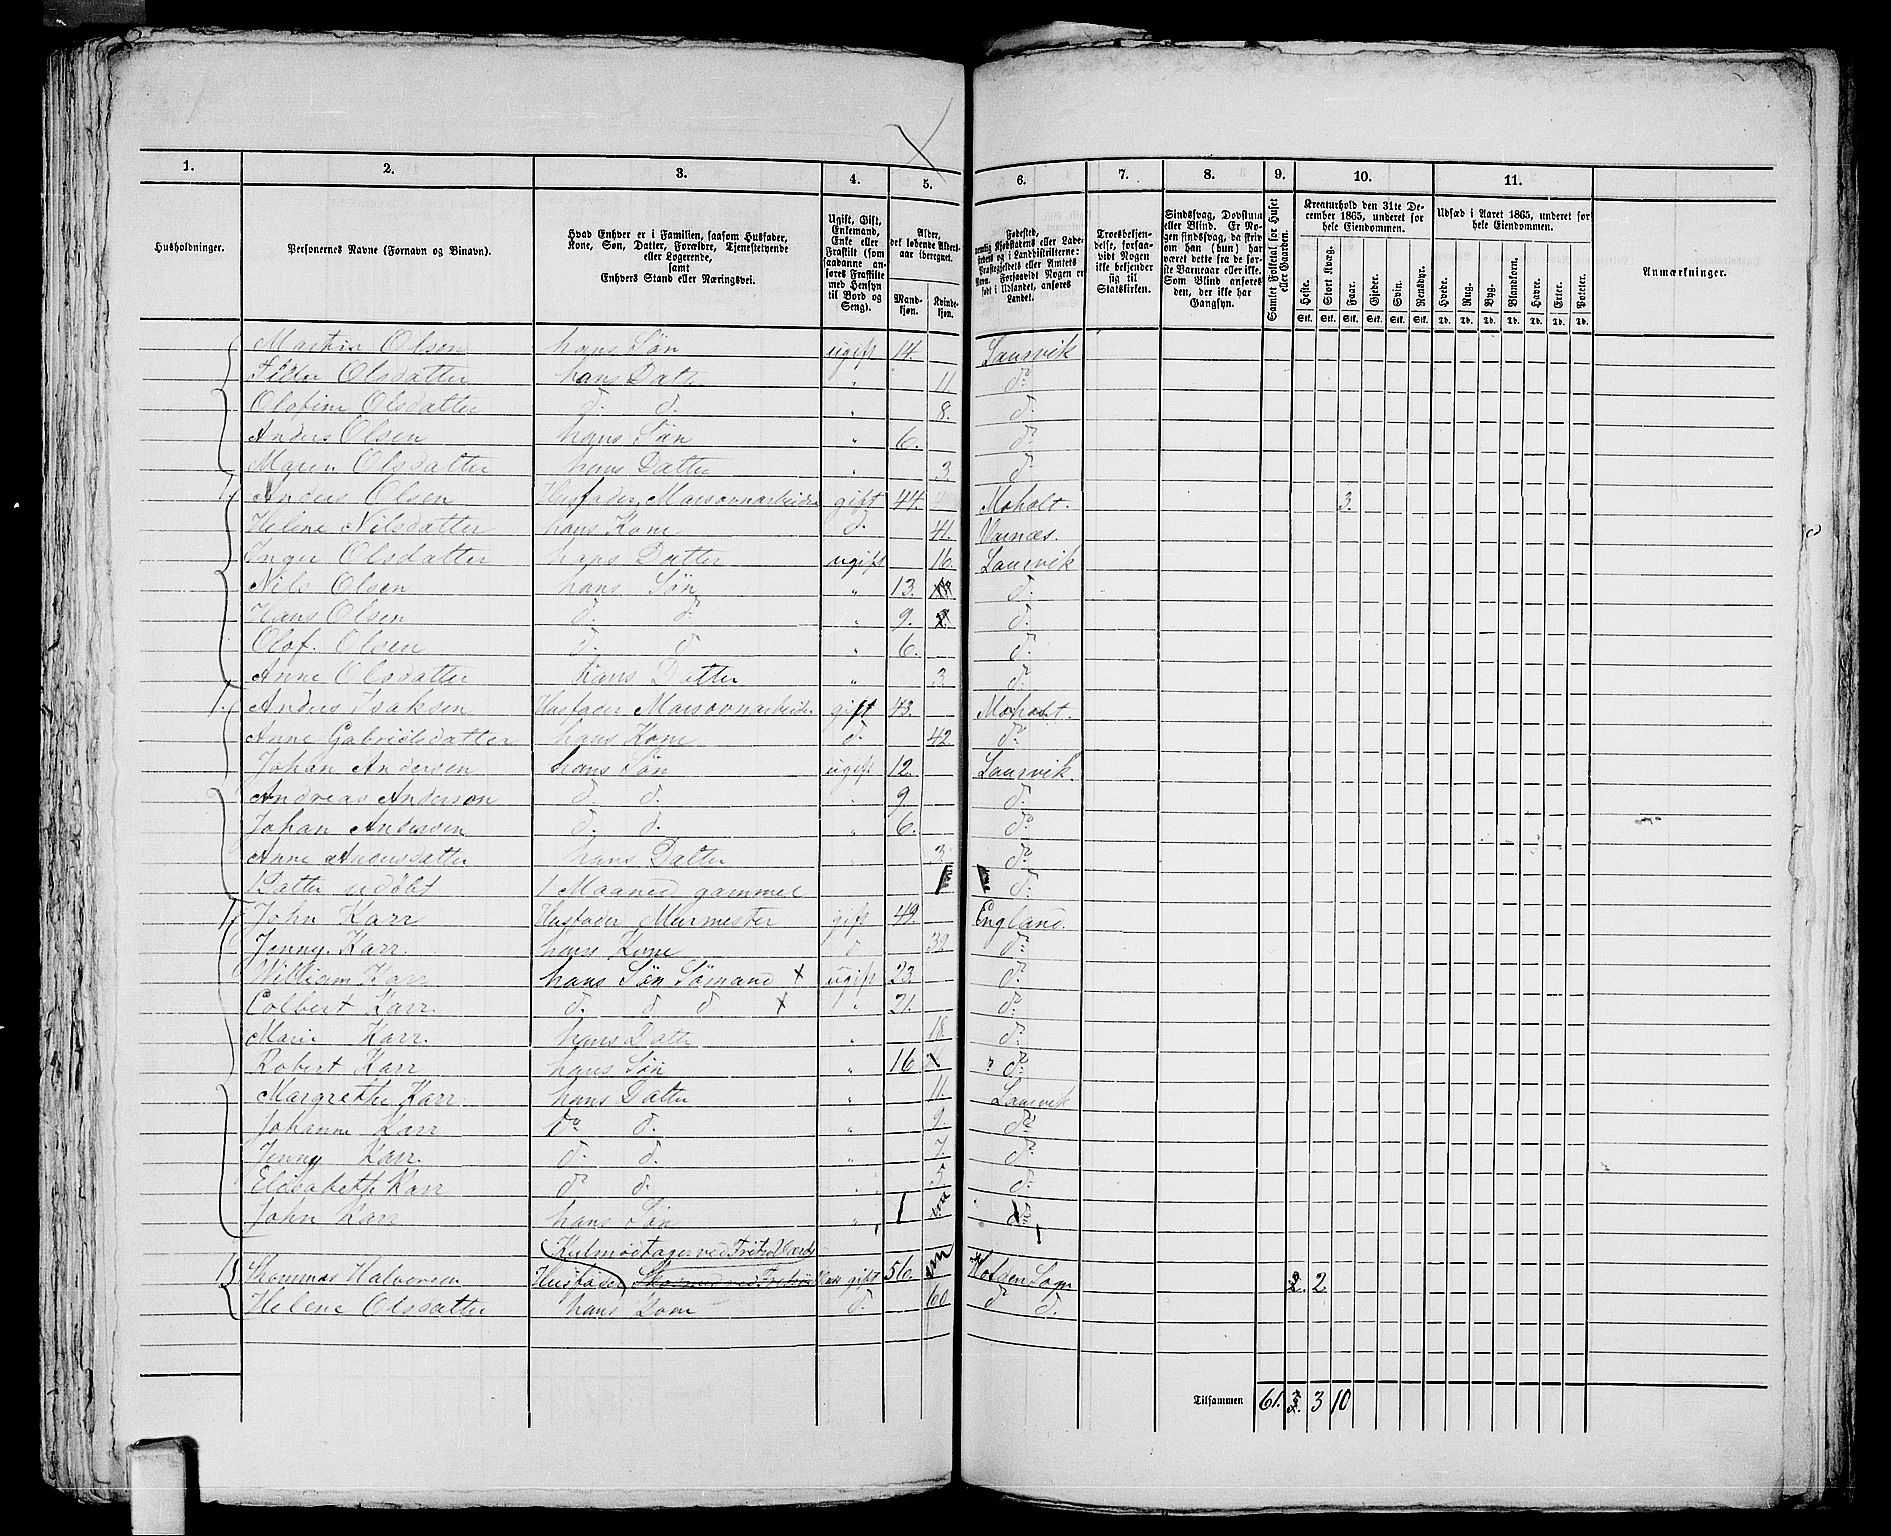 1. 2. 3. 4. 5. 6. 7. 8. 9. 10. 11.
Husholdninger.
Personernes Navne (Fornavn og Binavn).
Hvad Enhver er i Familien, saasom Husfader, Kone, Søn, Datter, Forældre, Tjenestetyende eller Logerende, samt Enhvers Stand eller Næringsvei.
Ugift, Gift, Enkemand, Enke eller Fraskilt (som saadanne anføres Fraskilte med Hensyn til Bord og Seng).
Alder, det løbende Alders-aar iberegnet.
Mand-kjøn. Kvinde-kjøn.
Fødested,
Troesbekjendelse, forsaavidt Nogen ikke bekjender sig til Statskirken.
Sindssvag, Døvstum eller Blind.
Samlet Folketal for Huset eller Gaarden.
Kreaturhold den 31te December 1865, underet for hele Eiendommen.
Heste. Stort Kvæg. Faar. Gjeder. Svin. Rensdyr.
Udsæd i Aaret 1865, underet for hele Eiendommen.
Hvede. Rug. Byg. Blandkorn. Havre. Erter. Poteter.
Anmærkninger.
Martin Olsen hans Søn ugift 14. Laurvik
Olsdatter hans Datter " 11 do
Olofine Olsdatter d. d. " 8. d.
Anders Olsen hans Søn " 6. do
Maren Olsdatter hans Datter " 3. d
1. Anders Olsen Husfader Masovnarbeider gift 44. Moholt. 3.
Helene Nilsdatter hans Kone d. 41. Varnæs.
Inger Olsdatter hans Datter ugift 16. Laurvik
Nils Olsen hans Søn " 13. d.
Hans Olsen d. do " 9. d.
Olof. Olsen d. d " 6. d.
Anne Olsdatter hans Datter " 3. d.
1. Anders Isaksen Husfader Masovnarbeider gift 43. Moholt.
Anne Gabrielsdatter hans Kone d. 42 do
Johan Andersen hans Søn ugift 12. Laurvik
Andreas Anderson d. d. " 9. d.
Johan Andersen d. d. " 6. do
Anne Andersdatter hans Datter " 3. do
Datter udøbt 1 Maaned gammel d.
1. John Karr Husfader Murmester gift 49. England.
Jenny. Karr. hans Kone d 39 do
William Karr hans Søn Sømand x ugift 23 d.
Colbert Karr. d. d d x " 21. do
Marie Karr. hans Datter " 18. d.
Robert Karr hans Søn " 16 " do
Margrethe Karr hans Datter " 11. Laurvik
Johanne Karr do d. " 9. do
Jenny Karr. d. d. " 7. do
Elisabeth Karr do d. " 5. d.
John Karr hans Søn " 1 do
Kulmodtager ved Fritzø Værk
1. Thommas Halvorsen Husfader gift 56. Hofgen Sogn 2. 2
Helene Olsdatter hans Kone d. 60 d d.
Tilsammen 61. 3 10